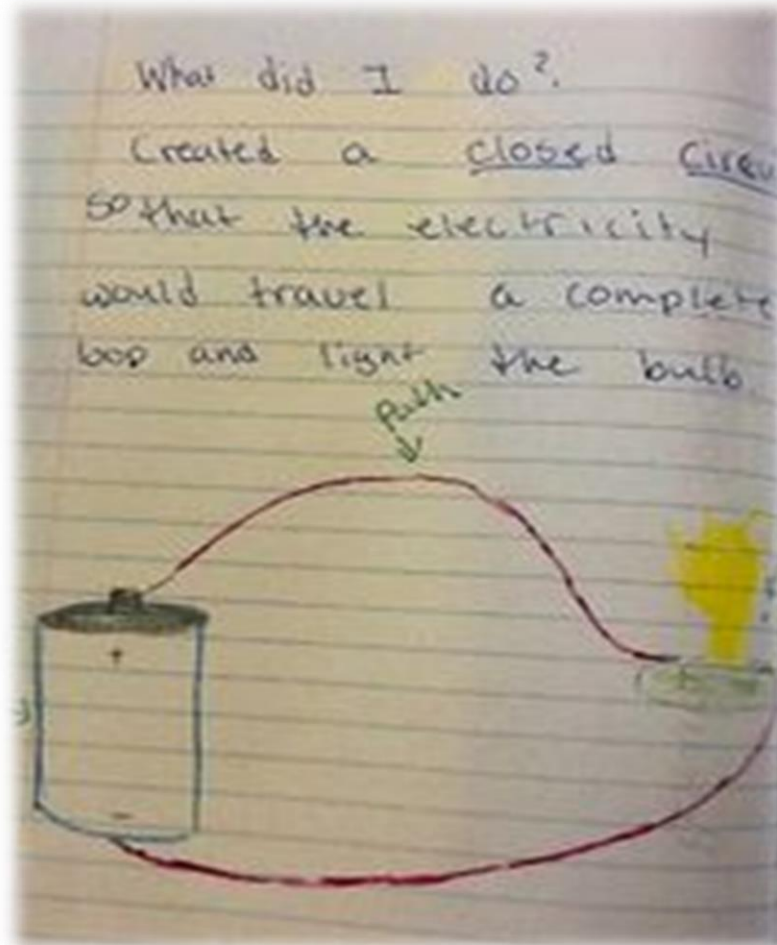 What did I do?
Created a closed Circu
so that the electricity
would travel a complete
loop and light the bulb.
Path
+
−